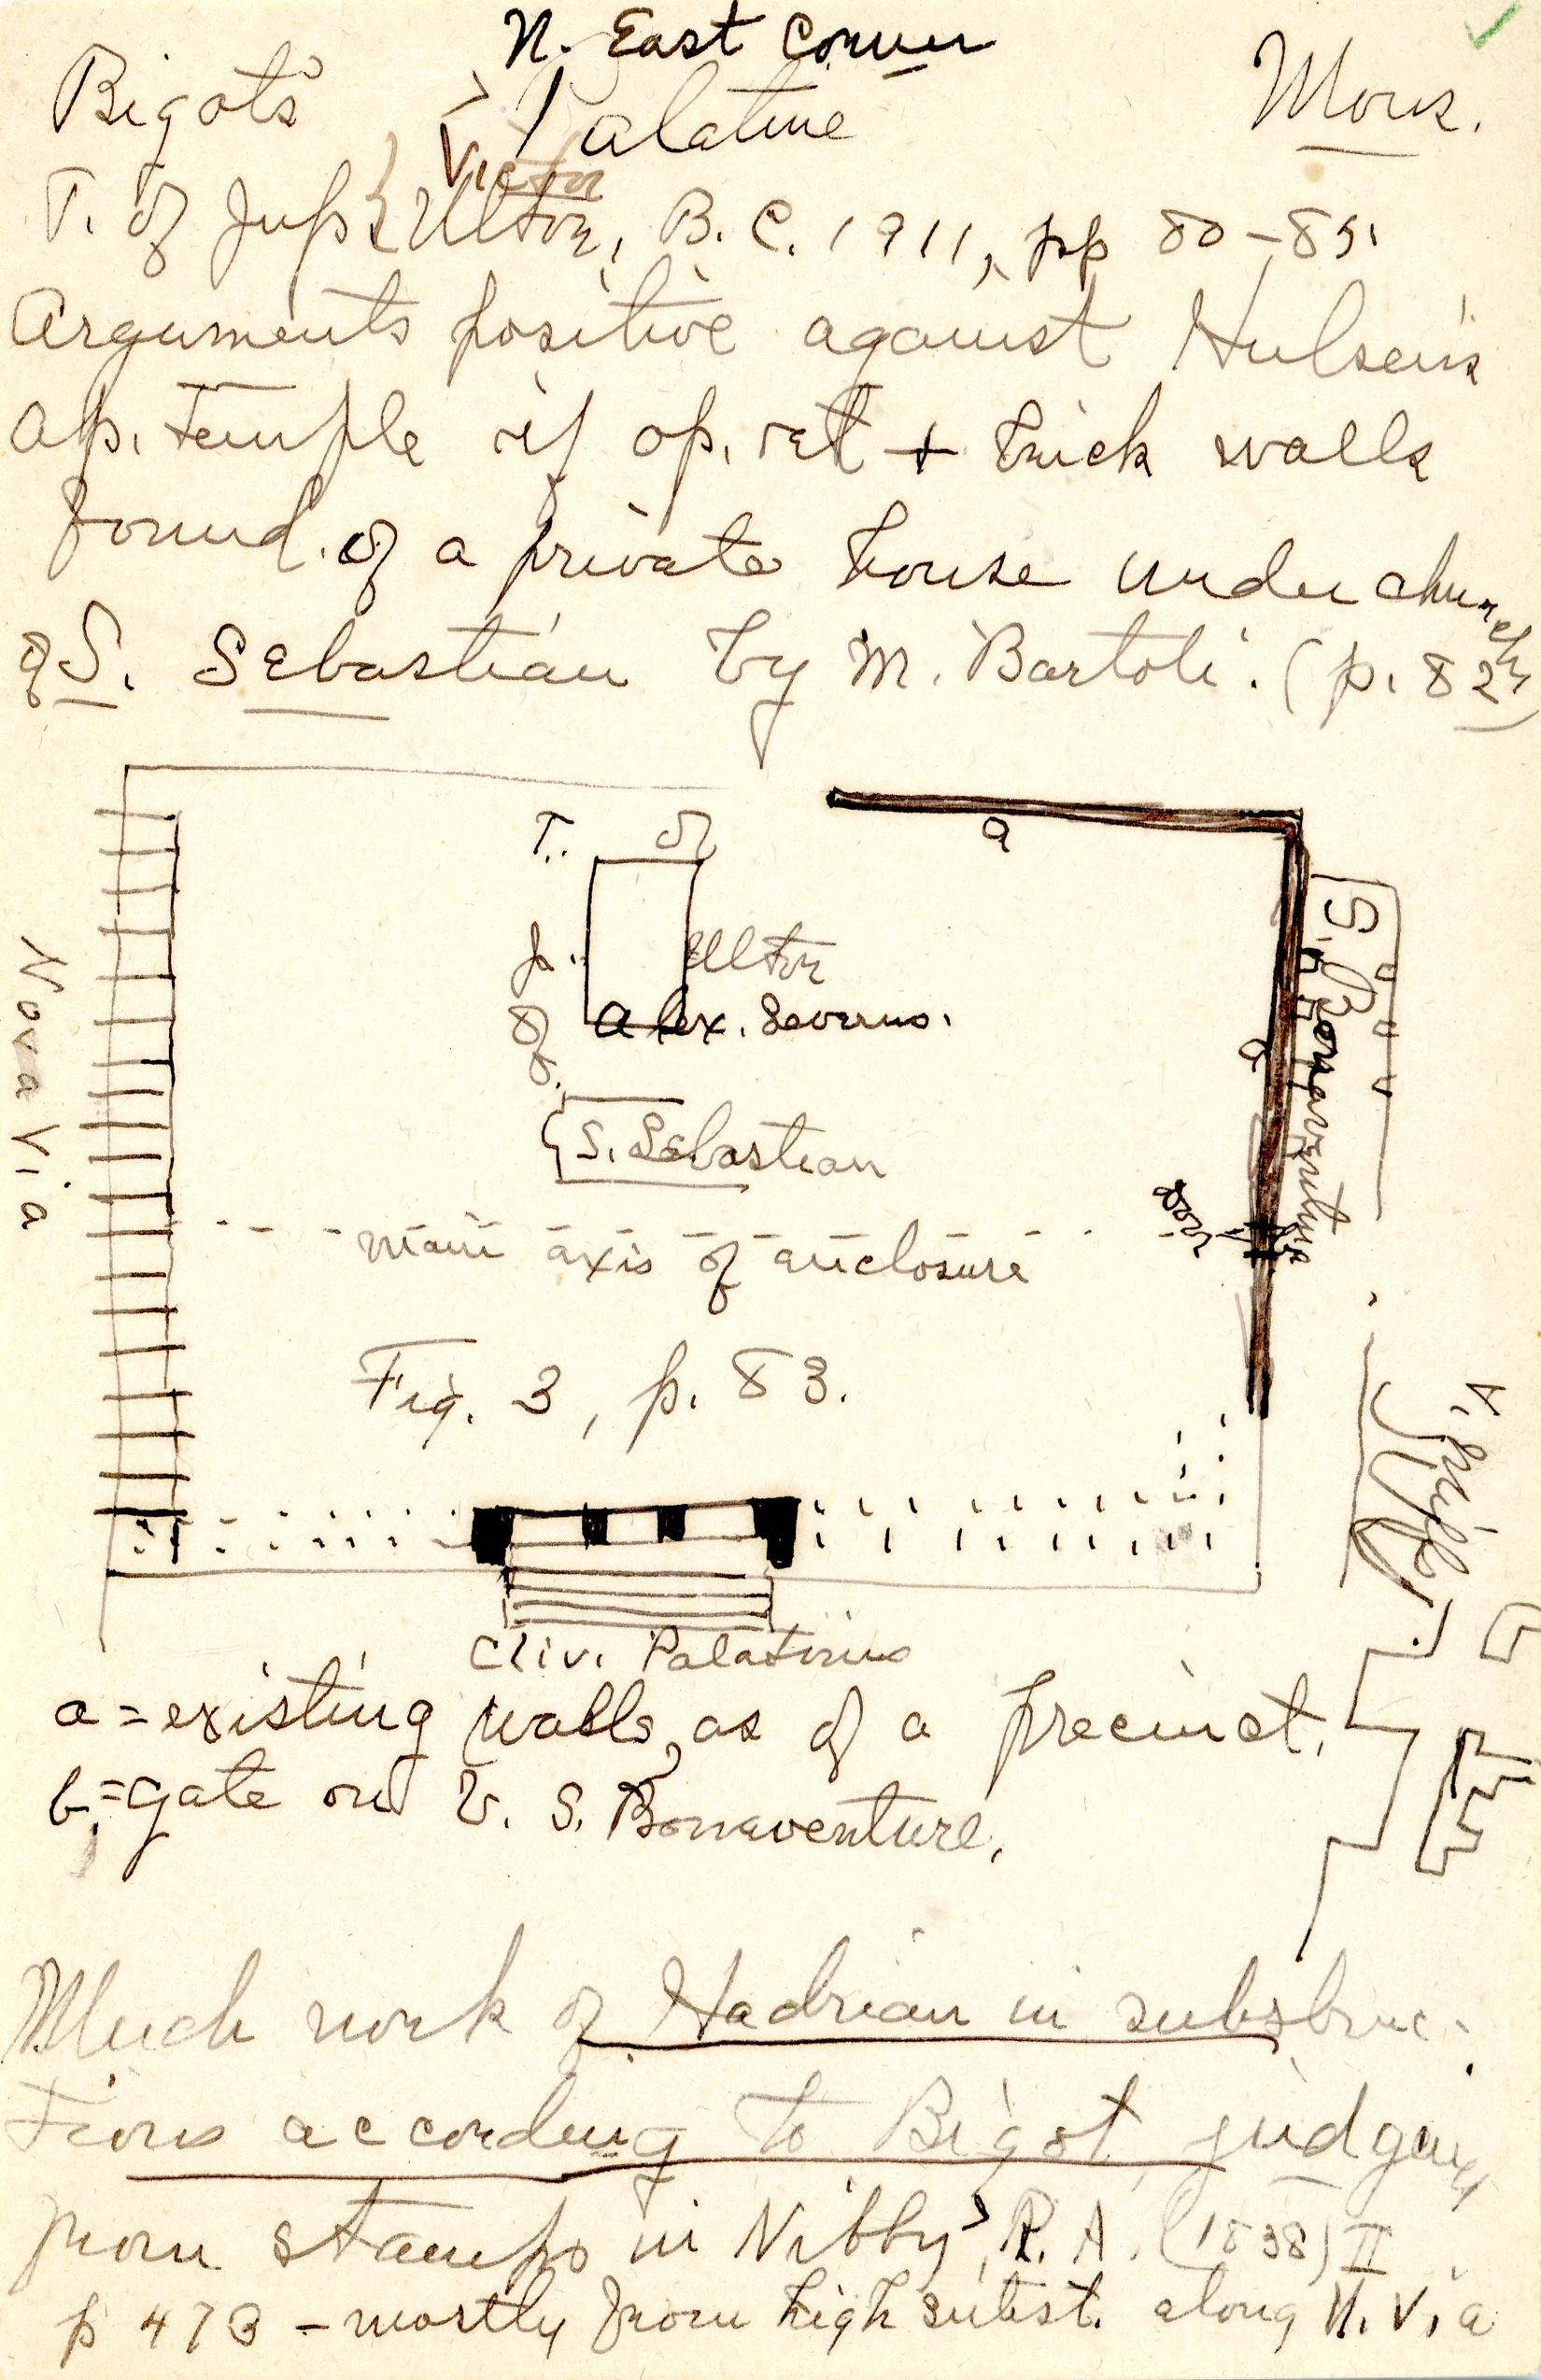 N. East Corner
Bigot's Palatine Mons.
Victor
T. of Jup. Ultor, B. C. 1911, pp 80-85.
Arguments positive against Hulsen's
Ap. Temple if op. ret + brick walls
found. of a private house under church
of S. Sebastian by M. Bartoli. (p. 82)
T. of
a
J.
Ultor
of
Alex. Severus.
S. Sebastian
Nova Via
S. Bonaventura
a
door
main axis of enclosure
Fig. 3, p. 83.
Cliv. Palatinus
a = existing walls, as of a precinct.
b = gate on V. S. Bonaventure.
Much work of Hadrian in substruc-
tions according to Bigot, judging
from stamps in Nibby, R. A. (1838) II
p 473 - mostly from high subst. along N. Via